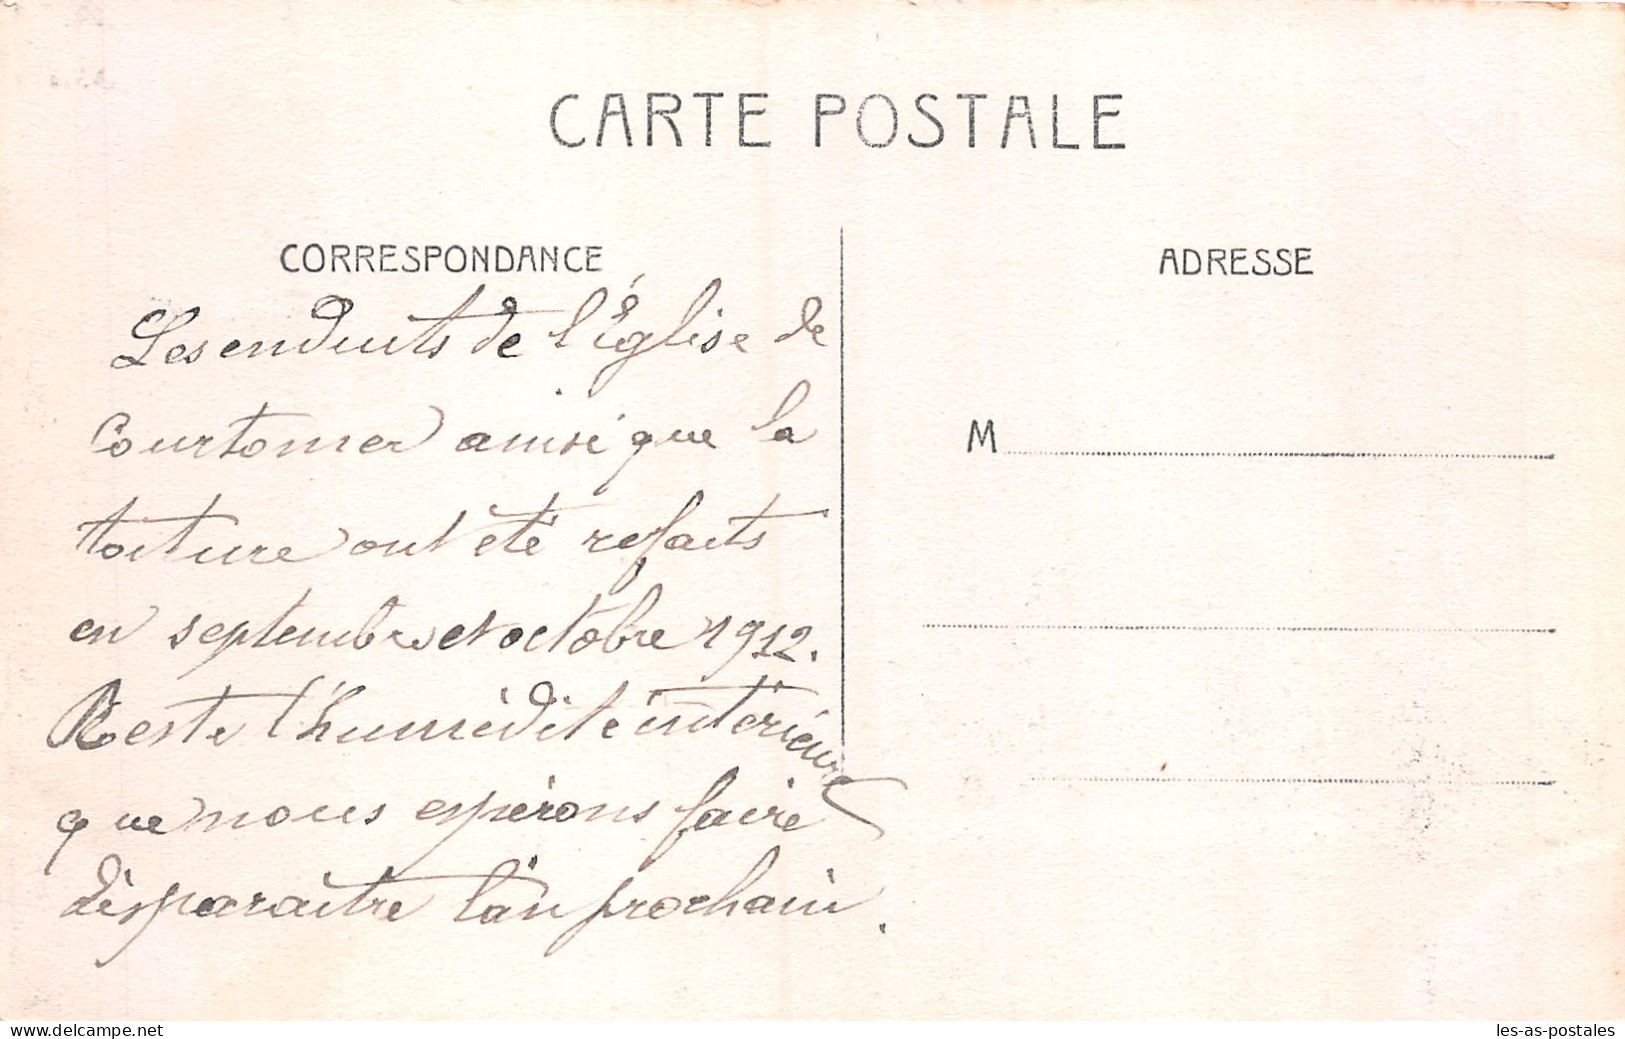 CARTE POSTALE
CORRESPONDANCE
ADRESSE
Les enduits de l'Église de
Courtomer ainsi que la
toiture ont été refaits
en septembre et octobre 1912.
Reste l'humidité intérieure
que nous espérons faire
disparaître l'an prochain.
M
www.delcampe.net
les-as-postales